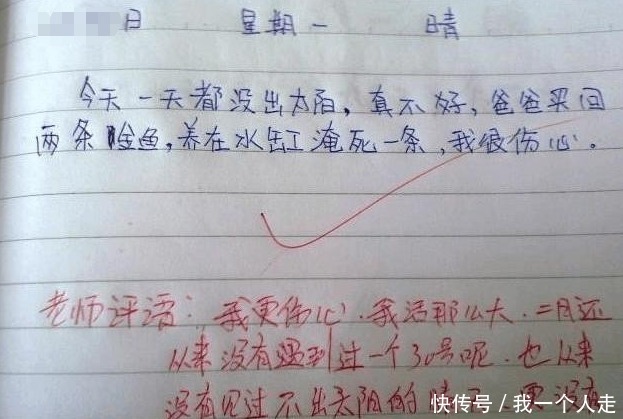 日 星期一 晴
今天一天都没出太阳，真不好，爸爸买回
两条金鱼，养在水缸淹死一条，我很伤心。
老师评语：我更伤心。我活那么大，二月还
从来没有遇到过一个30号呢。也从来
没有见过不出太阳的 更没有
快传号／我一个人走